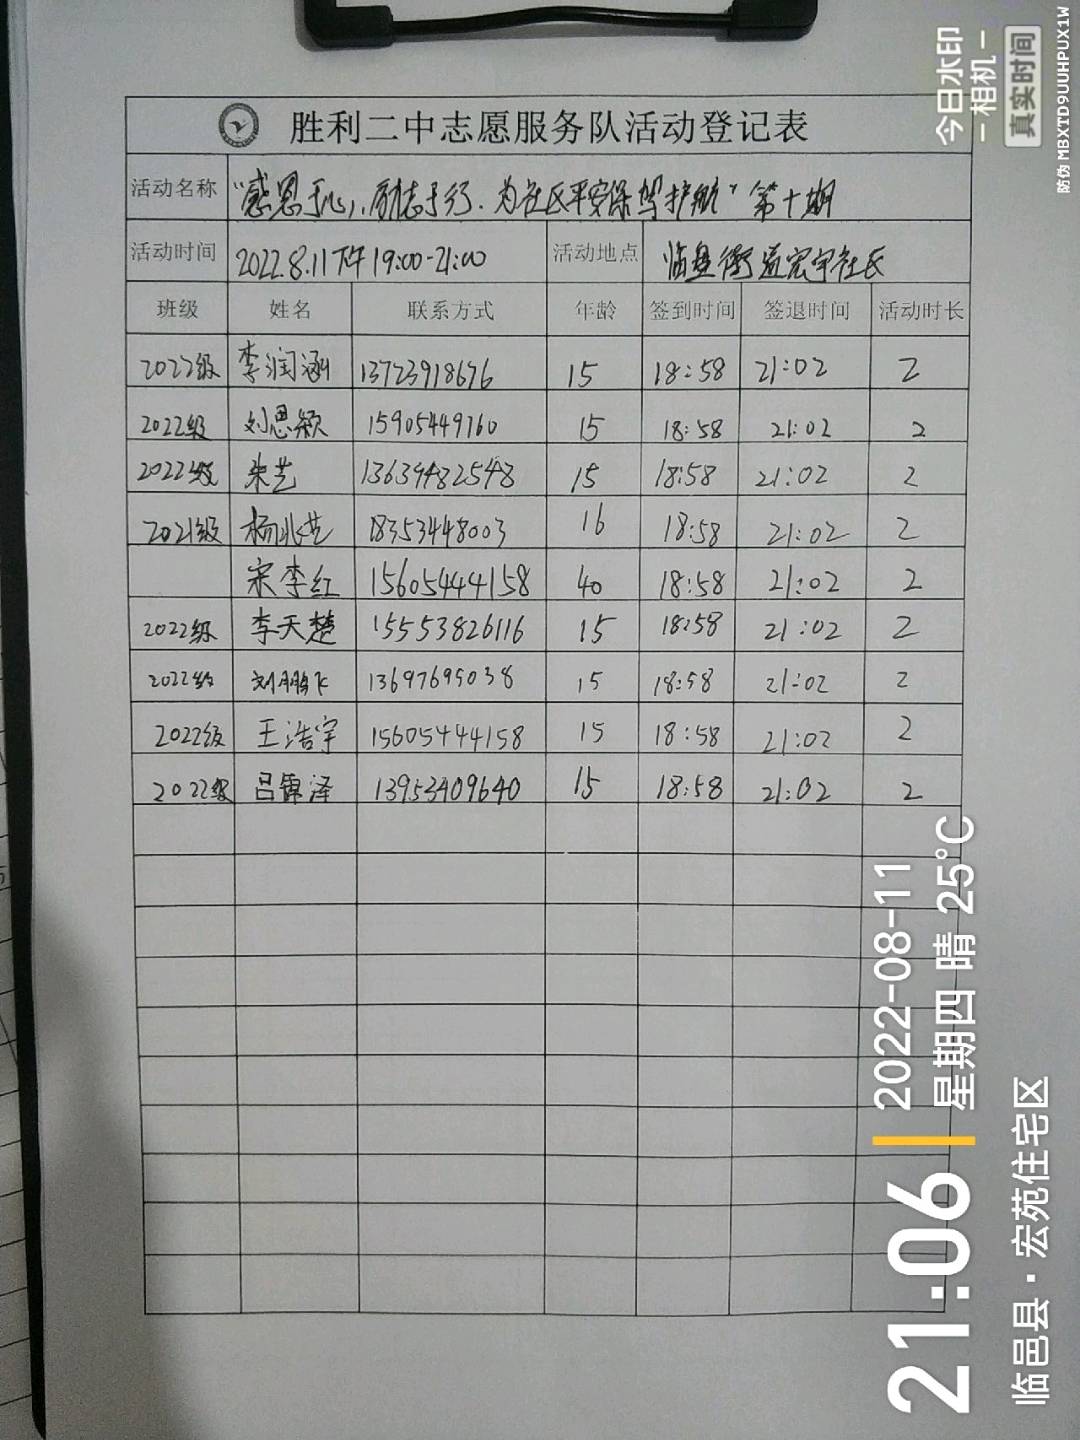 胜利二中志愿服务队活动登记表
活动名称 “感恩于心,励志于行.为社区平安保驾护航”第十期
活动时间 2022.8.11下午19:00-21:00 活动地点 临盘街道宏宇社区
班级 姓名 联系方式 年龄 签到时间 签退时间 活动时长
2022级 李润涵 13723918676 15 18:58 21:02 2
2022级 刘思颖 15905449760 15 18:58 21:02 2
2022级 朱艺 13639482548 15 18:58 21:02 2
2021级 杨兆艺 18353448003 16 18:58 21:02 2
宋李红 15605444158 40 18:58 21:02 2
2022级 李天楚 15553826116 15 18:58 21:02 2
2022级 刘鹏飞 13697695038 15 18:58 21:02 2
2022级 王浩宇 15605444158 15 18:58 21:02 2
2022级 吕锦泽 13953409640 15 18:58 21:02 2
今日水印
-相机-
真实时间
防伪 MBXTD9UUHPUX1W
21:06
2022-08-11
星期四 晴 25°C
临邑县·宏苑住宅区